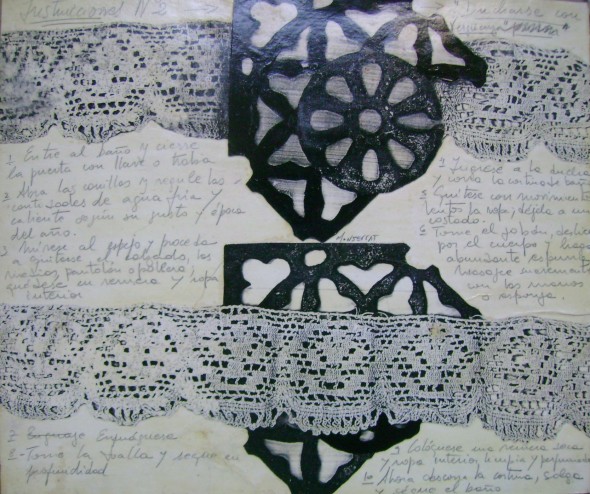 Instrucciones Nº 2
"Ducharse con
1 Entre al baño y cierre
la puerta con llave o traba
2 Abra las canillas y regule las
cantidades de agua fría y
caliente según su gusto y época
del año.
3 Mírese al espejo y proceda
a quitarse el calzado, las
medias, pantalón o pollera,
quédese en remera y ropa
interior
4 Ingrese a la ducha
y corra la cortina de baño
5 Quítese con movimientos
lentos la ropa, déjela a un
costado.
6 Tome el jabón,
por el cuerpo y haga
abundante espuma
con las manos
o esponja.
MONTSERRAT
7 Enjuáguese
8 - Tome la toalla y seque en
profundidad
9 Colóquese una remera seca
y ropa interior limpia y perfumada
10 Ahora descorra la cortina, salga
y seque el baño